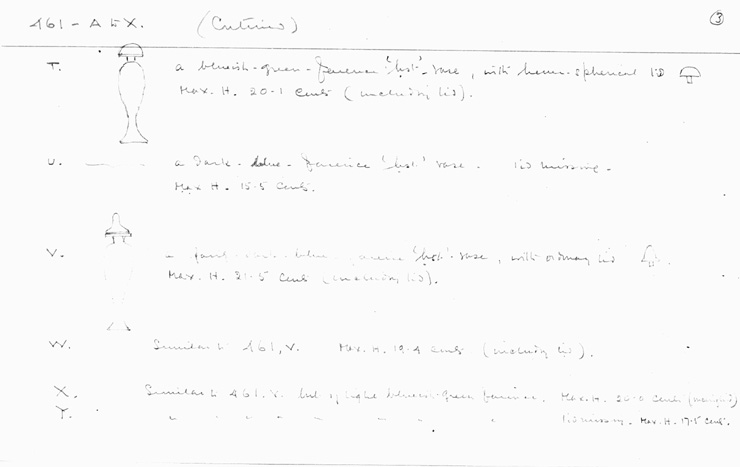 461 - A to X. (Continued) 3
T. a blueish-green-faience "hst"-vase, with hemi-spherical lid
Max. H. 20.1 cents (including lid).
U. a dark-blue-faience "hst" vase. lid missing.
Max H. 15.5 cents.
V. blue faience "hst"-vase, with ordinary lid
Max. H. 21.5 cents (including lid).
W. Similar to 461, V. Max. H. 19.4 cents (including lid).
X. Similar to 461. V. but of light blueish-green faience. Max. H. cents
Y. " " " " " " " " lid missing. Max. H. 17.5 cent.